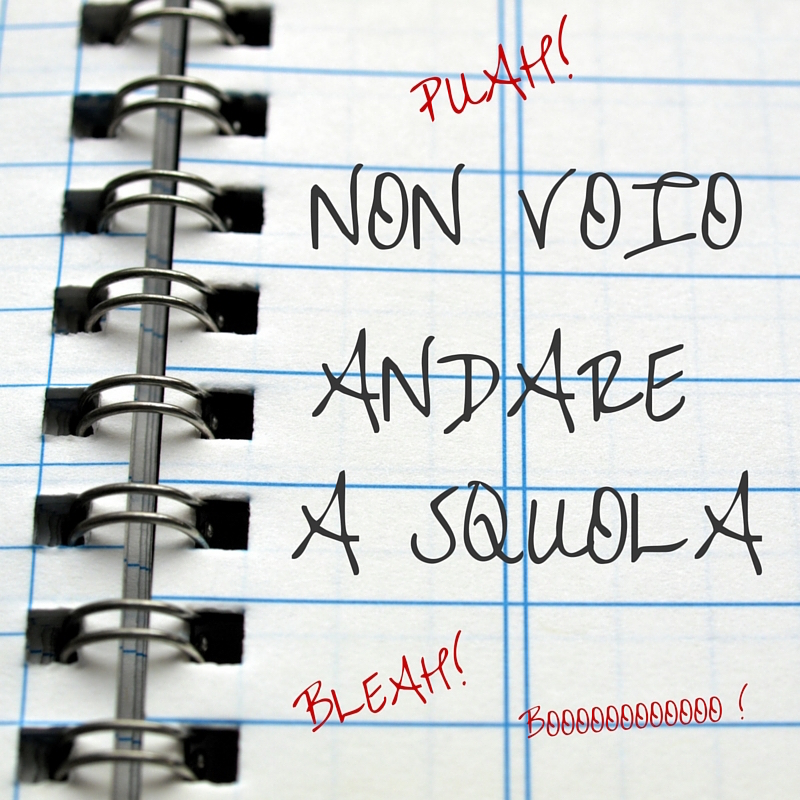 PUAH!
NON VOIO
ANDARE
A SQUOLA
BLEAH!
BOOOOOOOOOOOO!